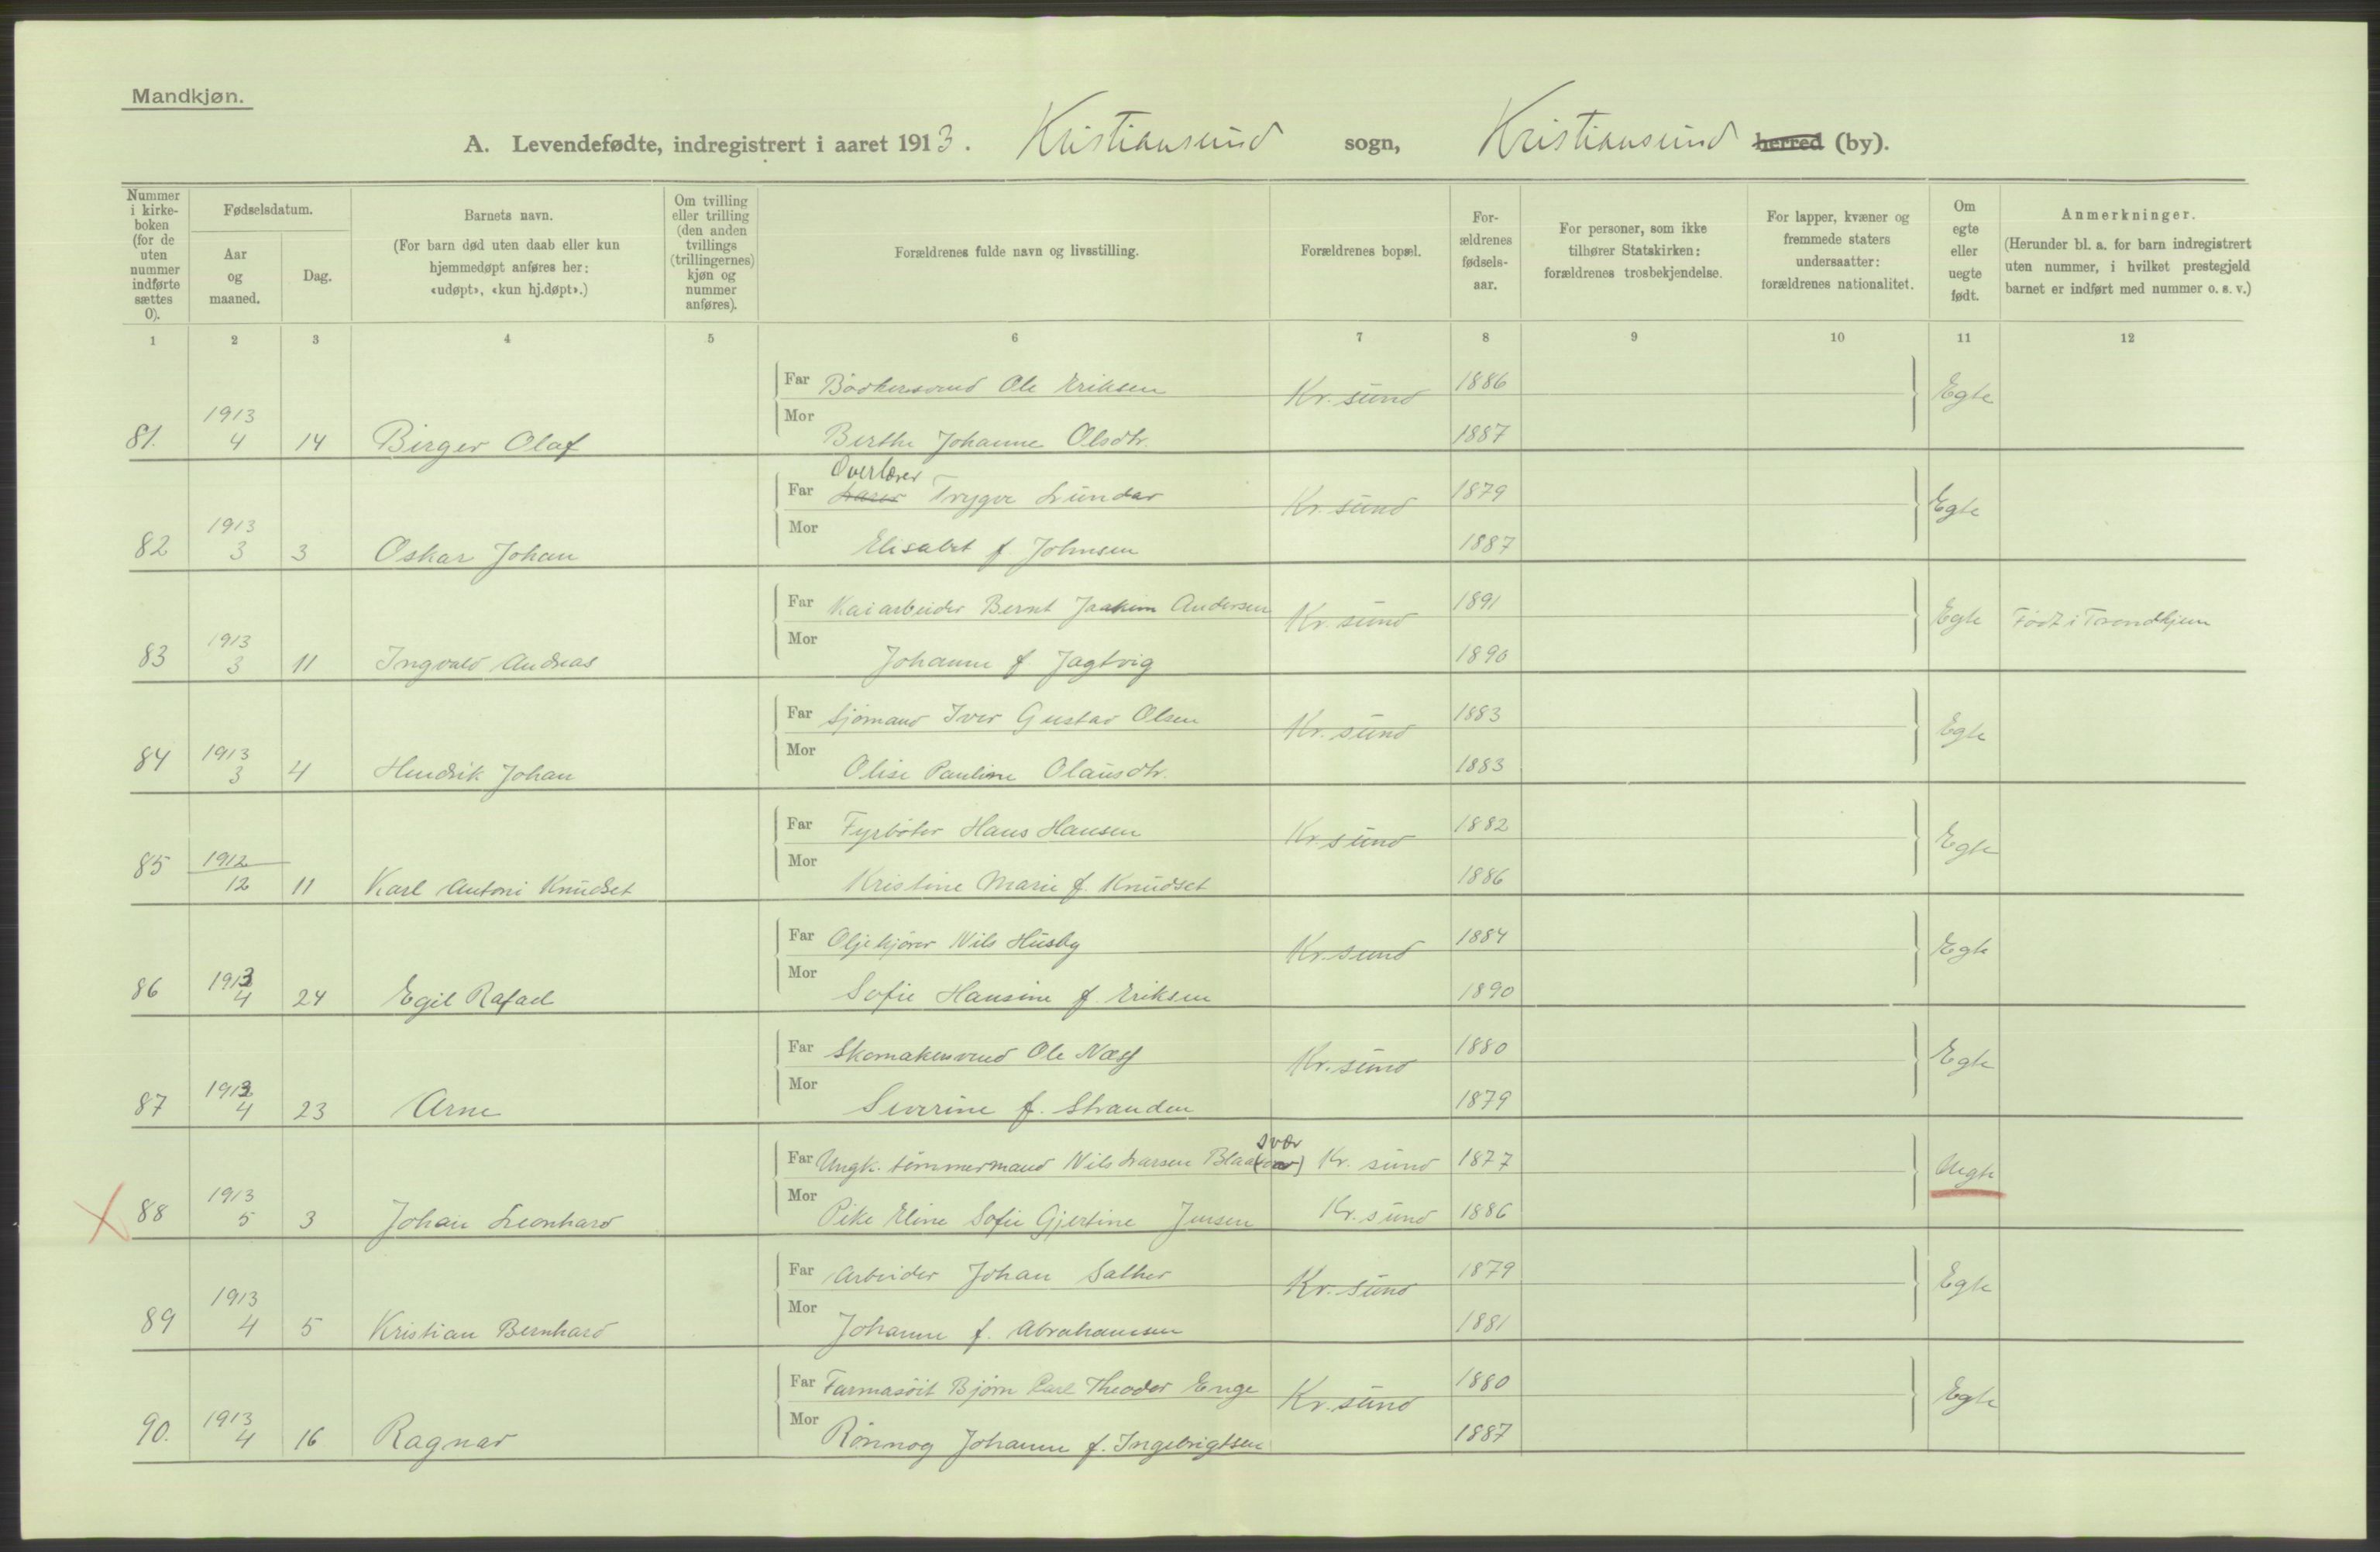 Mandkjøn.
A. Levendefødte, indregistrert i aaret 1913. Kristiansund sogn, Kristiansund herred (by).
Nummer i kirke-boken (for de uten nummer indførte sættes 0).
Fødselsdatum.
Aar og maaned.
Dag.
Barnets navn.
(For barn død uten daab eller kun hjemmedøpt anføres her: «udøpt», «kun hj.døpt».)
Om tvilling eller trilling (den anden tvillings (trillingernes) kjøn og nummer anføres).
Forældrenes fulde navn og livsstilling.
Forældrenes bopæl.
For-ældrenes fødsels-aar.
For personer, som ikke tilhører Statskirken: forældrenes trosbekjendelse.
For lapper, kvæner og fremmede staters undersaatter: forældrenes nationalitet.
Om egte eller uegte født.
Anmerkninger.
(Herunder bl. a. for barn indregistrert uten nummer, i hvilket prestegjeld barnet er indført med nummer o. s. v.)
1 2 3 4 5 6 7 8 9 10 11 12
Far Bödkersvend Ole Eriksen Kr. sund 1886 Egte
81. 1913 4 14 Birger Olaf
Mor Berthe Johanne Olsdtr. 1887
Overlærer
Far Lærer Trygve Lundar Kr. sund 1879 Egte
82 1913 3 3 Oskar Johan
Mor Elisabet f. Johnsen 1887
Far Kaiarbeider Bernt Joakim Andersen Kr. sund 1891 Egte Født i Trondhjem
83 1913 3 11 Ingvald Andreas
Mor Johanne f Jagtvig 1890
Far Sjömand Iver Gustav Olsen Kr. sund 1883 Egte
84 1913 3 4 Hendrik Johan
Mor Olise Pauline Olausdtr. 1883
Far Fyrböter Hans Hansen Kr. sund 1882 Egte
85 1912 12 11 Karl Antoni Knudset
Mor Kristine Marie f. Knudset 1886
Far Oljekjörer Nils Husby Kr. sund 1884 Egte
86 1913 4 24 Egil Rafael
Mor Sofie Hansine f. Eriksen 1890
Far Skomakersvend Ole Næss Kr. sund 1880 Egte
87 1913 4 23 Arne
Mor Severine f. Stranden 1879
svær
Far Ungk. tömmermand Nils Larsen Kr. sund 1877 Uegte
88 1913 5 3 Johan Leonhard
Mor Pike Eline Sofie Gjertine Jensen Kr. sund 1886
Far Arbeider Johan Sather Kr. sund 1879 Egte
89 1913 4 5 Kristian Bernhard
Mor Johanne f. Abrahamsen 1881
Far Farmasöit Bjørn Carl Theodor Enge Kr. sund 1880 Egte
90. 1913 4 16 Ragnar
Mor Rönnog Johanne f. Ingebrigtsen 1887